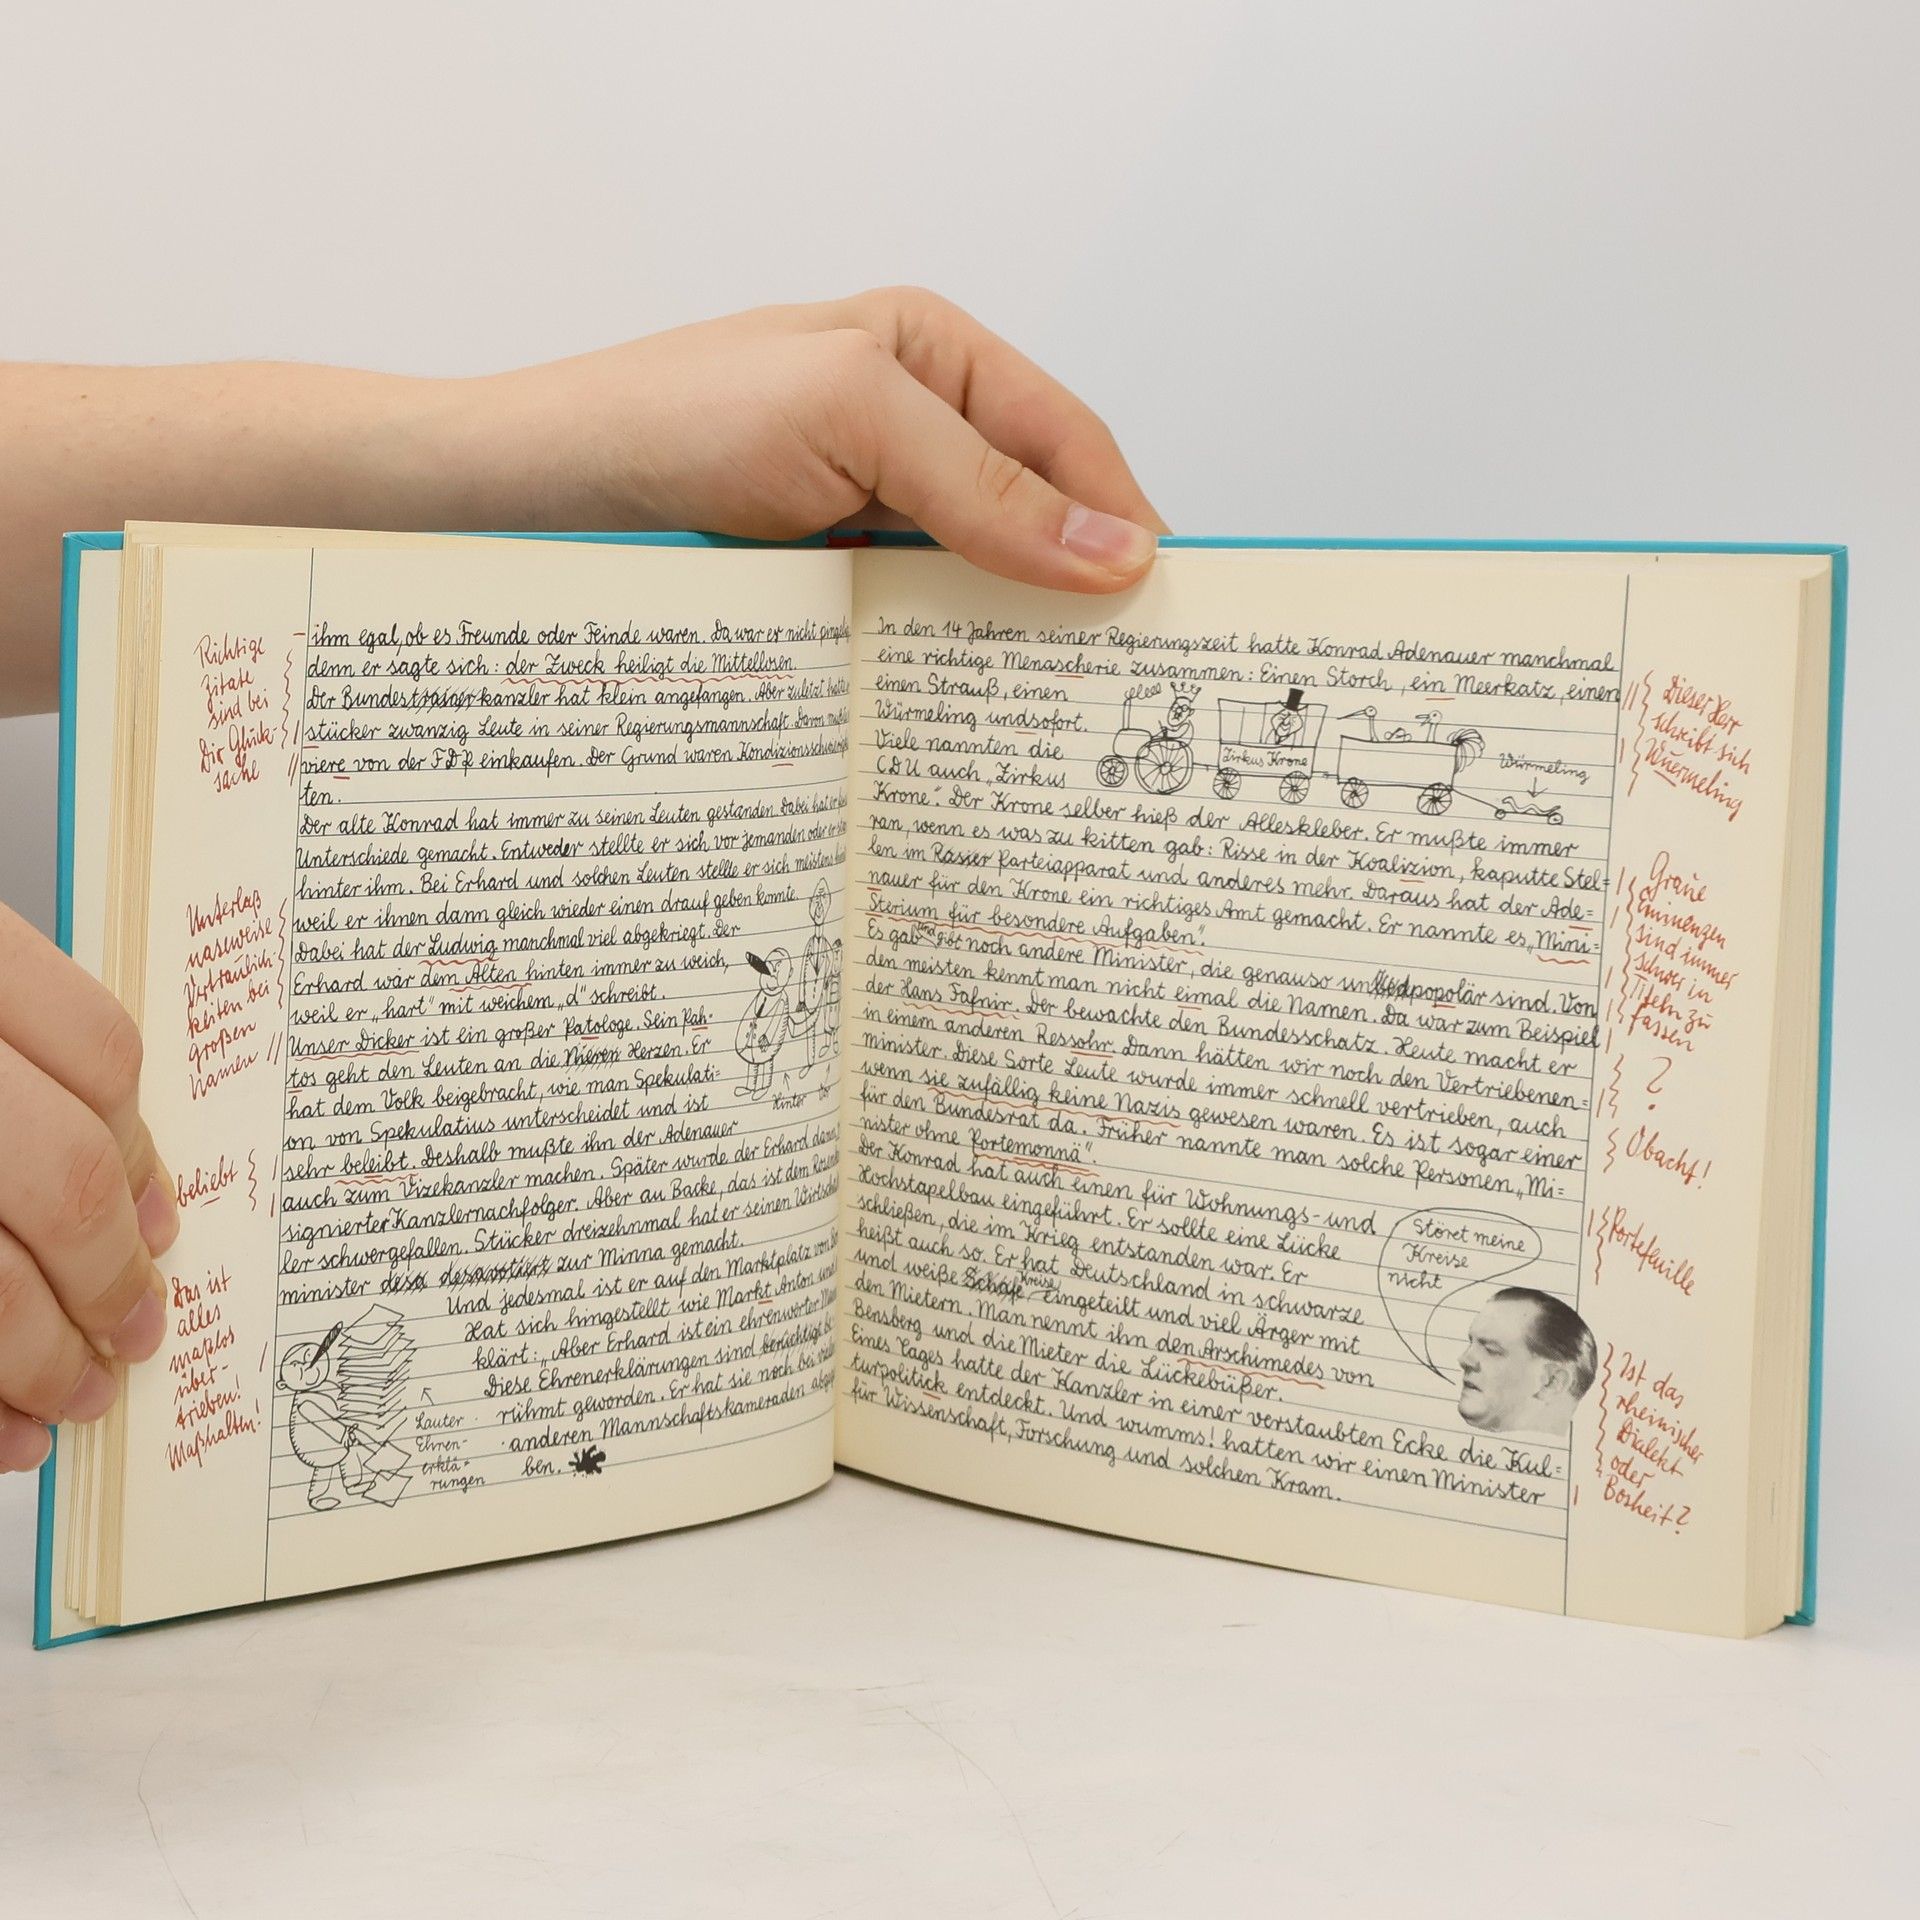 Richtige
Zitate
sind bei
Dir Glück-
sache
ihm egal, ob es Freunde oder Feinde waren. Da war er nicht
denn er sagte sich: der Zweck heiligt die Mittellosen.
Der Bundestrainer kanzler hat klein angefangen. Aber zuletzt
stücker zwanzig Leute in seiner Regierungsmannschaft. Davon
viere von der FDP einkaufen. Der Grund waren
ten.
Der alte Konrad hat immer zu seinen Leuten gestanden. Dabei hat er
Unterschiede gemacht. Entweder stellte er sich vor jemanden oder er
hinter ihm. Bei Erhard und solchen Leuten stellte er sich meistens
weil er ihnen dann gleich wieder einen drauf geben konnte.
Dabei hat der Ludwig manchmal viel abgekriegt. Der
Erhard war dem Alten hinten immer zu weich,
weil er „hart" mit weichem „d" schreibt.
Unser Dicker ist ein großer Patologe. Sein Pah-
tos geht den Leuten an die Nieren Herzen. Er
hat dem Volk beigebracht, wie man Spekulati=
on von Spekulatius unterscheidet und ist
sehr beleibt. Deshalb mußte ihn der Adenauer
auch zum Vizekanzler machen. Später wurde der Erhard
signierter Kanzlernachfolger. Aber au Backe, das ist dem
ler schwergefallen. Stücker dreizehnmal hat er seinen
minister desavotiert zur Minna gemacht.
Und jedesmal ist er auf den Marktplatz von
Hat sich hingestellt wie Markt Anton und
klärt: „Aber Erhard ist ein ehrenwerter
Diese Ehrenerklärungen sind berüchtigt
rühmt geworden. Er hat sie noch bei
anderen Mannschaftskameraden
ben.
Hinter
Vor
Lauter
Ehren-
erklä-
rungen
Unterlaß
naseweise
Vertraulich-
keiten bei
großen
Namen
beliebt
Das ist
alles
maßlos
über-
trieben!
Maßhalten!
In den 14 Jahren seiner Regierungszeit hatte Konrad Adenauer manchmal
eine richtige Menascherie zusammen: Einen Storch, ein Meerkatz, einen
einen Strauß, einen
Würmeling undsofort.
Viele nannten die
CDU auch „Zirkus
Krone". Der Krone selber hieß der Alleskleber. Er mußte immer
ran, wenn es was zu kitten gab: Risse in der Koalizion, kaputte Stel=
len im Rasier Parteiapparat und anderes mehr. Daraus hat der Ade=
nauer für den Krone ein richtiges Amt gemacht. Er nannte es „Mini=
sterium für besondere Aufgaben".
Es gab und gibt noch andere Minister, die genauso unpopolär sind. Von
den meisten kennt man nicht eimal die Namen. Da war zum Beispiel
der Hans Fafnir. Der bewachte den Bundesschatz. Heute macht er
in einem anderen Ressohr. Dann hätten wir noch den Vertriebenen=
minister. Diese Sorte Leute wurde immer schnell vertrieben, auch
wenn sie zufällig keine Nazis gewesen waren. Es ist sogar einer
für den Bundesrat da. Früher nannte man solche Personen „Mi=
nister ohne Portemonnä".
Der Konrad hat auch einen für Wohnungs- und
Hochstapelbau eingeführt. Er sollte eine Lücke
schließen, die im Krieg entstanden war. Er
heißt auch so. Er hat Deutschland in schwarze
und weiße Schafe Kreise eingeteilt und viel Ärger mit
den Mietern. Man nennt ihn den Arschimedes von
Bensberg und die Mieter die Lückebüßer.
Eines Tages hatte der Kanzler in einer verstaubten Ecke die Kul=
turpolitick entdeckt. Und wumms! hatten wir einen Minister
für Wissenschaft, Forschung und solchen Kram.
Zirkus Krone
Würmeling
Störet meine
Kreise
nicht
Dieser Herr
schreibt sich
Wuermeling
Graue
Eminenzen
sind immer
schwer in
Titeln zu
fassen
?
Obacht!
Portefeuille
Ist das
rheinischer
Dialekt
oder
Bosheit?